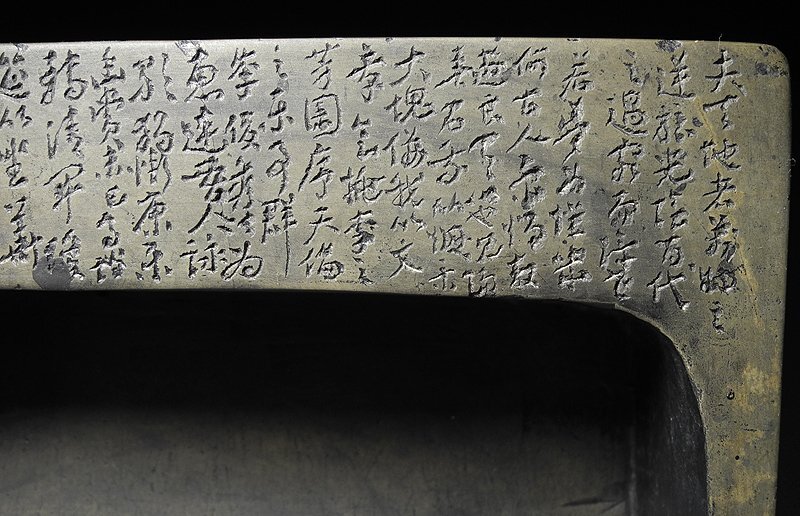 夫天地者萬物之
逆旅光陰百代
之過客而浮生
若夢為懽幾
何古人秉燭夜
遊良有以也況陽
春召我以烟景
大塊假我以文
章會桃李之
芳園序天倫
之樂事群
季俊秀皆為
惠連吾人詠
歌獨慚康樂
幽賞未已高談
轉清開瓊
筵以坐花